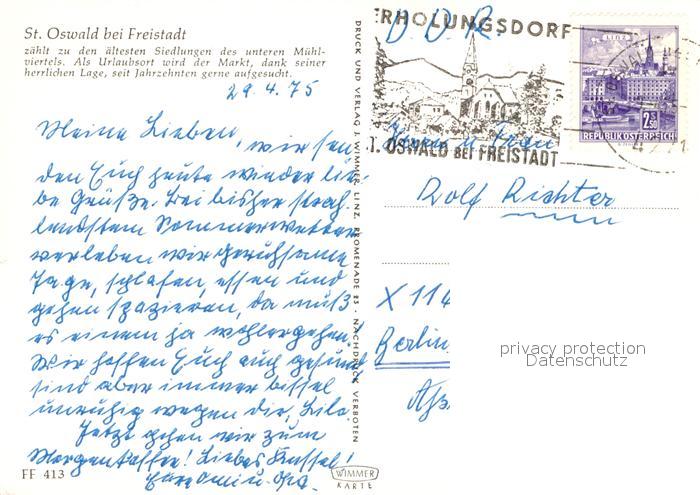 St. Oswald bei Freistadt
zählt zu den ältesten Siedlungen des unteren Mühl-
viertels. Als Urlaubsort wird der Markt, dank seiner
herrlichen Lage, seit Jahrzehnten gerne aufgesucht.
29.4.75
Meine Lieben, wir sen
den Euch heute wieder lie
be Grüße. Bei bisher strah
lendstem Sommerwetter
verleben wir geruhsame
Tage, schlafen, essen und
gehen spazieren, da muß
es einem ja wohlergehen!
Wir hoffen Euch auch gesund
sind aber immer bissel
unruhig wegen die, Lilo.
Jetzt gehen wir zum
Morgenkaffee! Liebes Bussel!
Eure Omi u. Opa.
FF 413
DRUCK UND VERLAG J. WIMMER, LINZ, PROMENADE 23 · NACHDRUCK VERBOTEN
WIMMER
KARTE
DDR
ERHOLUNGSDORF
ST. OSWALD BEI FREISTADT
LINZ
2.50
REPUBLIK ÖSTERREICH
Herrn u. Frau
Rolf Richter
X 114
Berlin
privacy protection
Datenschutz